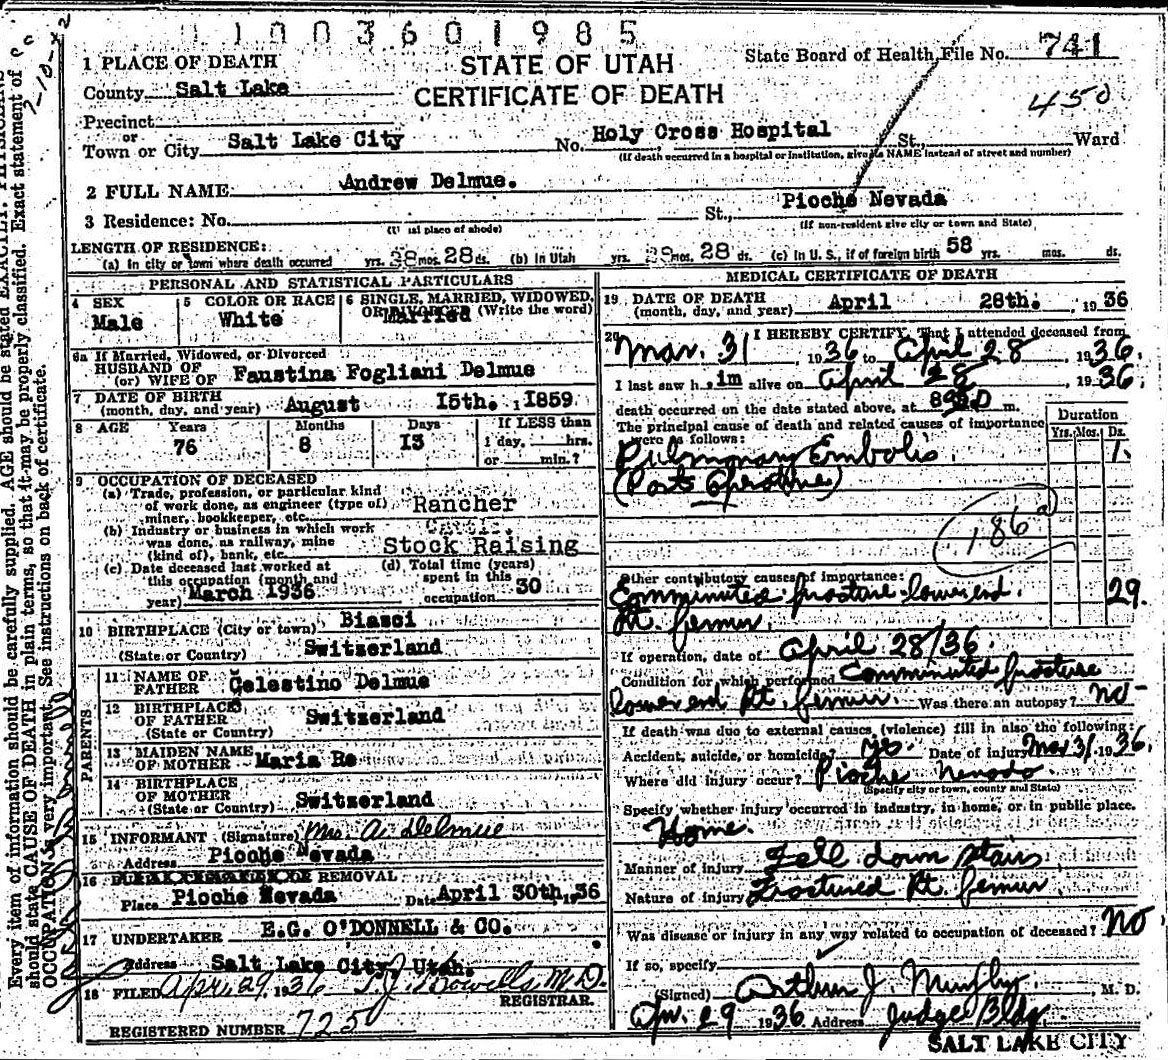 1 1 0 0 3 6 0 1 9 8 5
STATE OF UTAH
CERTIFICATE OF DEATH
State Board of Health File No. 741
450
1 PLACE OF DEATH
County Salt Lake
Precinct
or
Town or City Salt Lake City No. Holy Cross Hospital St., Ward
(If death occurred in a hospital or institution, give its NAME instead of street and number)
2 FULL NAME Andrew Delmue.
3 Residence: No. St., Pioche Nevada
(Usual place of abode) (If non-resident give city or town and State)
LENGTH OF RESIDENCE:
(a) In city or town where death occurred yrs. mos. 28 ds. (b) In Utah yrs. mos. 28 ds. (c) In U. S., if of foreign birth 58 yrs. mos. ds.
PERSONAL AND STATISTICAL PARTICULARS
4 SEX Male
5 COLOR OR RACE White
6 SINGLE, MARRIED, WIDOWED, OR DIVORCED (Write the word) Married
6a If Married, Widowed, or Divorced
HUSBAND OF
(or) WIFE OF Faustina Fogliani Delmue
7 DATE OF BIRTH
(month, day, and year) August 15th. , 1859
8 AGE Years Months Days If LESS than
76 8 13 1 day, hrs.
or min.?
9 OCCUPATION OF DECEASED
(a) Trade, profession, or particular kind
of work done, as engineer (type of)
miner, bookkeeper, etc. Rancher
(b) Industry or business in which work
was done, as railway, mine
(kind of), bank, etc. Stock Raising
(c) Date deceased last worked at
this occupation (month and
year) March 1936
(d) Total time (years)
spent in this
occupation 30
10 BIRTHPLACE (City or town) Biasci
(State or Country) Switzerland
PARENTS
11 NAME OF
FATHER Celestino Delmue
12 BIRTHPLACE
OF FATHER Switzerland
(State or Country)
13 MAIDEN NAME
OF MOTHER Maria Re
14 BIRTHPLACE
OF MOTHER Switzerland
(State or Country)
15 INFORMANT (Signature) Mrs. A. Delmue
Address Pioche Nevada
16 REMOVAL
Place Pioche Nevada Date April 30th, 36
17 UNDERTAKER E.G. O'DONNELL & CO.
Address Salt Lake City, Utah.
18 FILED Apr. 29, 1936 M.D.
REGISTRAR.
REGISTERED NUMBER 725
MEDICAL CERTIFICATE OF DEATH
19 DATE OF DEATH
(month, day, and year) April 28th. , 1936
20 I HEREBY CERTIFY, That I attended deceased from
Mar. 31 , 1936 to April 28 , 1936.
I last saw h im alive on April 28 , 1936
death occurred on the date stated above, at m.
The principal cause of death and related causes of importance
were as follows:
Duration
Yrs. Mos. Ds.
Pulmonary Embolis. 1.
(Post Operative)
186a
Other contributory causes of importance:
Comminuted fracture lower end. 29.
Rt. femur.
If operation, date of April 28/36.
Condition for which performed Comminuted fracture
lower end Rt. femur. Was there an autopsy? no
If death was due to external causes, (violence) fill in also the following:
Accident, suicide, or homicide? yes. Date of injury Mar 31, 1936.
Where did injury occur? Pioche Nevada.
(Specify city or town, county and State)
Specify whether injury occurred in industry, in home, or in public place.
Home.
Manner of injury Fell down stairs
Nature of injury Fractured Rt. femur.
Was disease or injury in any way related to occupation of deceased? No
If so, specify
(Signed) Arthur J. , M. D.
Apr. 29 1936 Address Judge Bldg.
SALT LAKE CITY
Every item of information should be carefully supplied. AGE should be stated EXACTLY. PHYSICIANS
should state CAUSE OF DEATH in plain terms, so that it may be properly classified. Exact statement of
OCCUPATION is very important. See instructions on back of certificate.